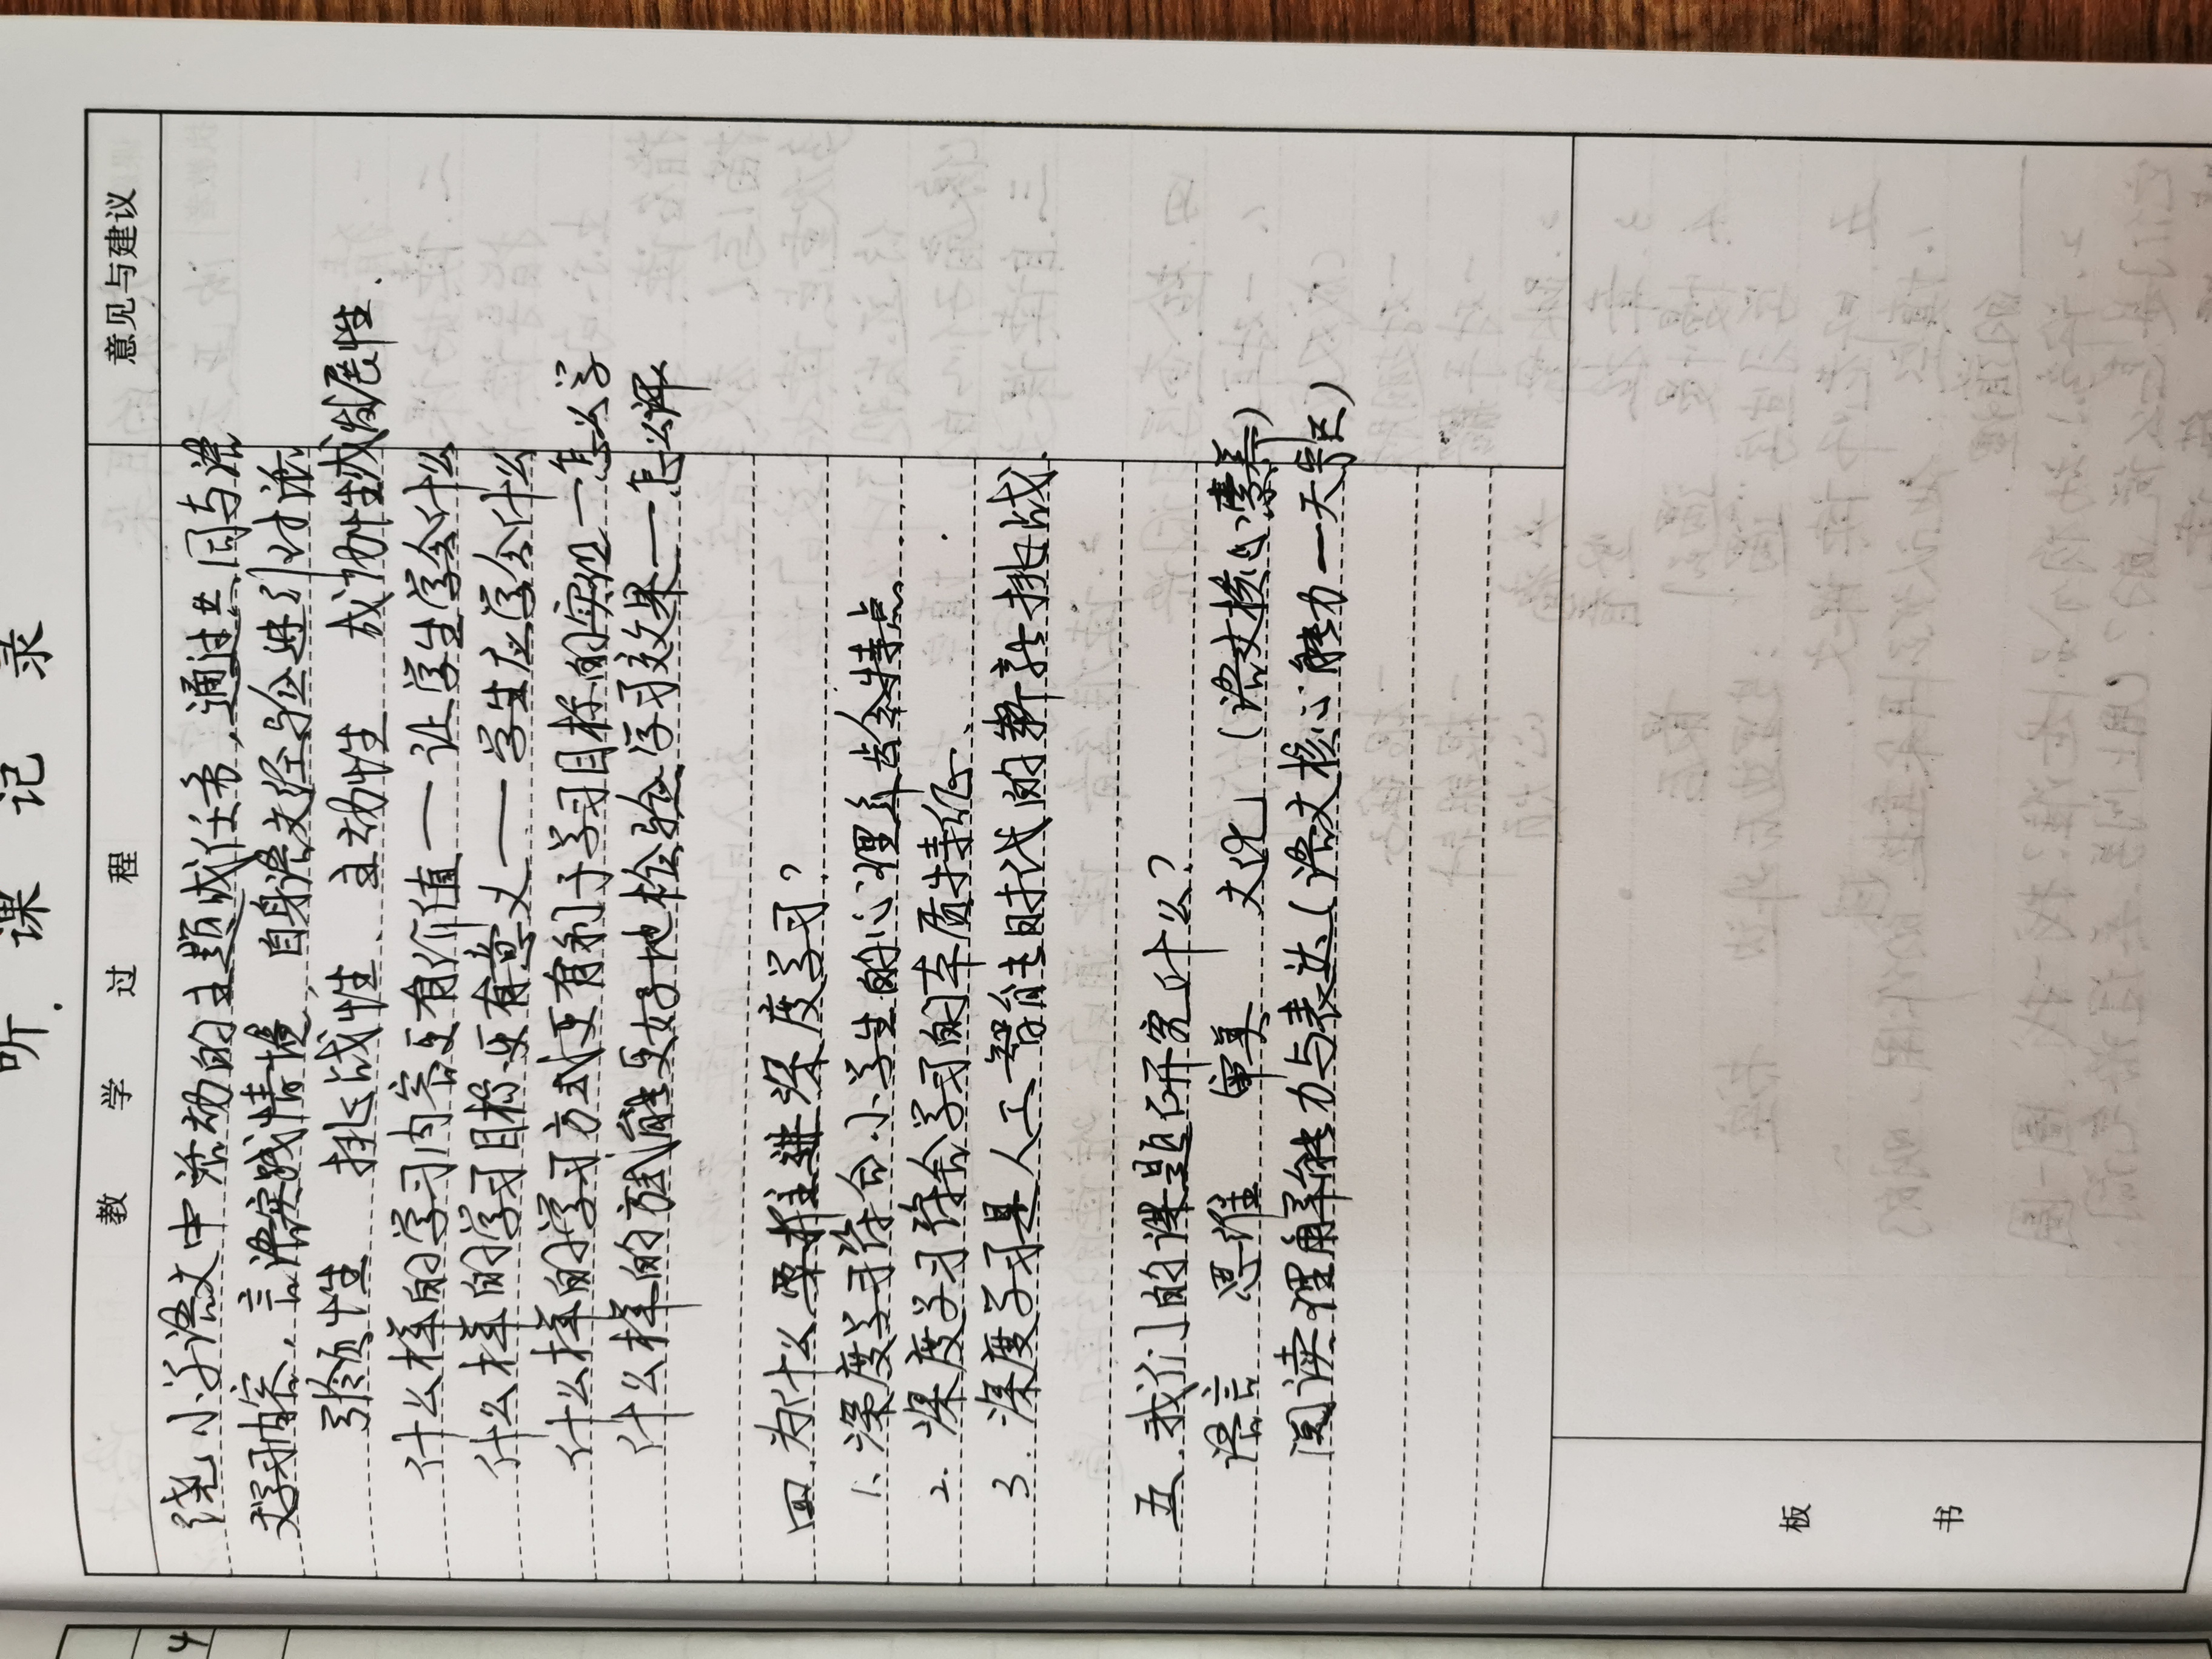 听 课 记 录
教 学 过 程
意见与建议
绕小学语文中活动的主题或任务,通过共同与语
文学习内容、言语实践情境、自身语文经验进行对话
引领性 挑战性、主动性 成协性或发展性.
什么样的学习内容更有价值——让学生学会什么
什么样的学习目标更有意义——学生应学会什么
什么样的学习方式更有利于学习目标的实现—怎么学
什么样的方式能更好地检验学习效果——怎么评
四.为什么要推进深度学习?
1.深度学习符合小学生的心理年龄特点.
2.深度学习符合学习的本质特征、
3.深度学习是人工智能时代的新挑战.
五.我们的课题研究什么?
语言 思维 审美 文化 (语文核心素养)
阅读理解能力与表达(语文核心能力—关键)
板
书
4